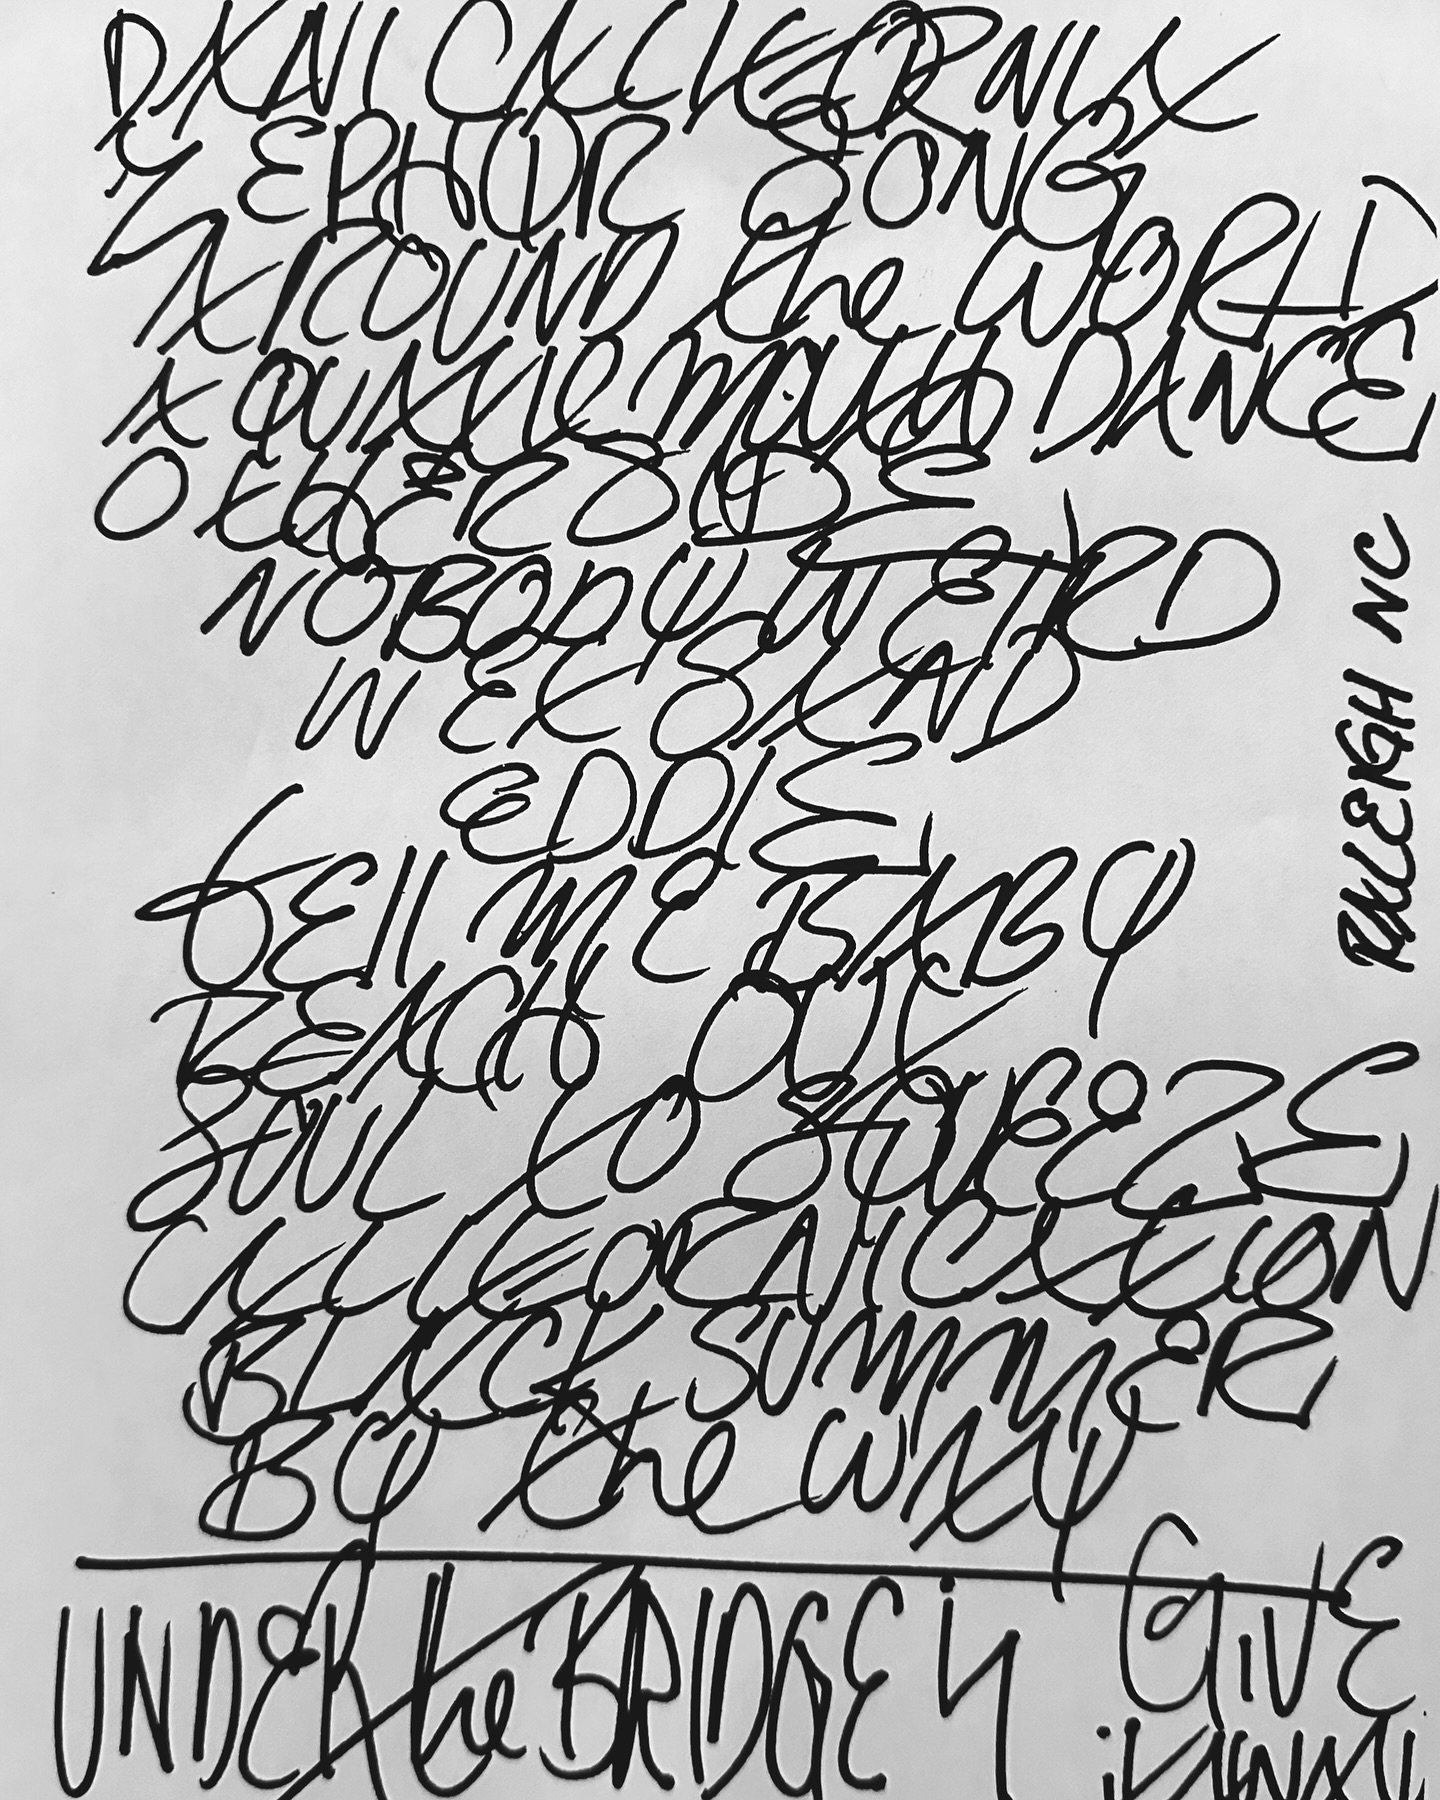 DANI CALIFORNIA
ZEPHYR SONG
AROUND the WORLD
AQUATIC MOUTH DANCE
OTHERSIDE
NOBODY WEIRD
WET SAND
EDDIE
TELL ME BABY
REACH OUT
SOUL TO SQUEEZE
CALIFORNICATION
BLACK SUMMER
BY the WAY
UNDER the BRIDGE
GIVE
RALEIGH NC